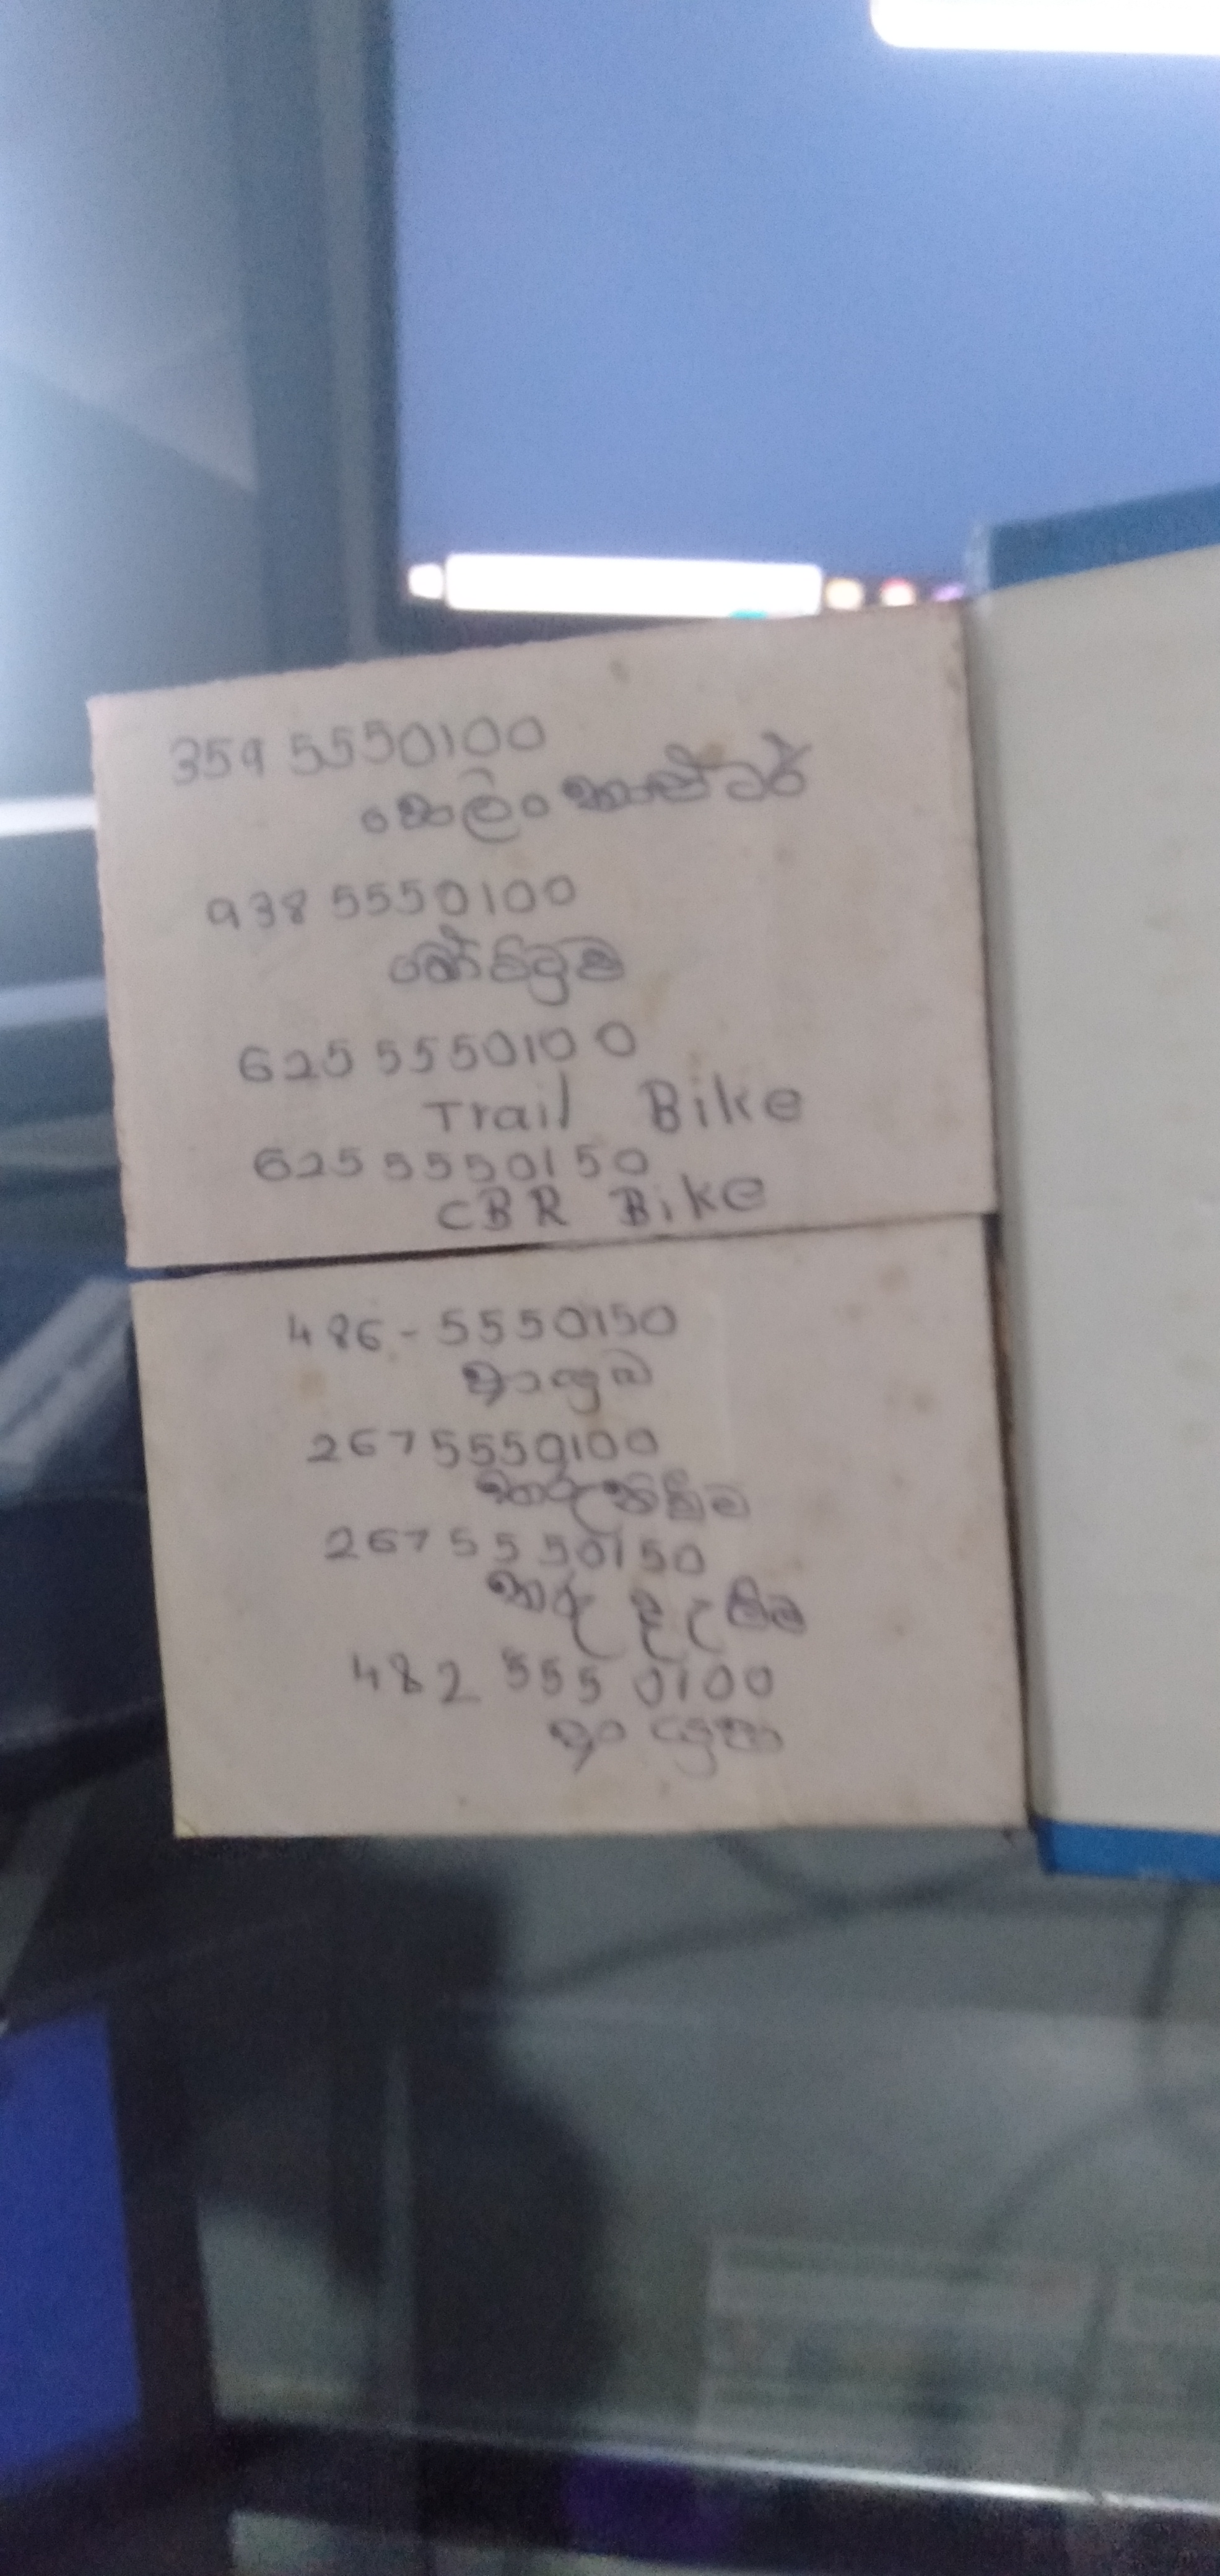 359 5550100
හෙලිකොප්ටර්
938 5550100
කෝච්චුව
625 5550100
Trail Bike
625 5550150
CBR Bike
486-5550150
ආයුධ
267 5550100
තරු
267 5550150
තරු
482 555 0100